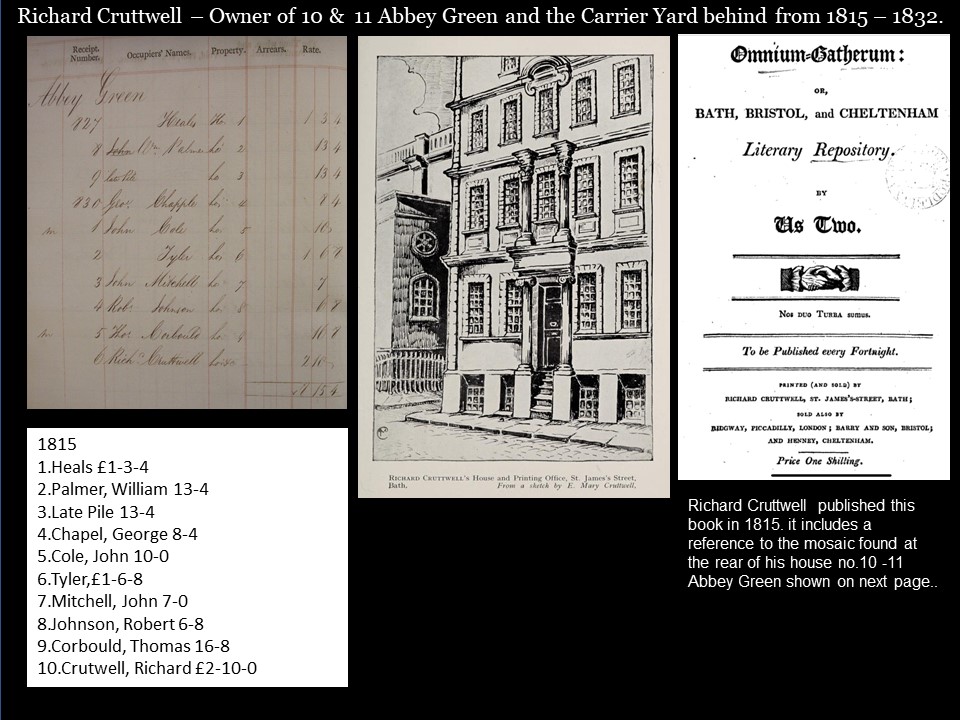 Richard Cruttwell – Owner of 10 & 11 Abbey Green and the Carrier Yard behind from 1815 – 1832.
Receipt Number. Occupiers' Names. Property. Arrears. Rate.
Abbey Green
827 Heals Ho 1 1 3 4
8 John Wm. Palmer ho 2 13 4
9 late Pile ho 3 13 4
830 Geo. Chapple ho 4 8 4
1 John Cole ho 5 10
2 Tyler ho 6 1 6 8
3 John Mitchell ho 7 7
4 Rob. Johnson ho 8 6 8
5 Tho. Corbould ho 9 16 8
6 Rich Cruttwell house 2 10
1815
1.Heals £1-3-4
2.Palmer, William 13-4
3.Late Pile 13-4
4.Chapel, George 8-4
5.Cole, John 10-0
6.Tyler,£1-6-8
7.Mitchell, John 7-0
8.Johnson, Robert 6-8
9.Corbould, Thomas 16-8
10.Crutwell, Richard £2-10-0
Richard Cruttwell's House and Printing Office, St. James's Street,
Bath. From a sketch by E. Mary Cruttwell.
Omnium-Gatherum:
OR,
BATH, BRISTOL, and CHELTENHAM
Literary Repository.
BY
Us Two.
Nos duo Turba sumus.
To be Published every Fortnight.
PRINTED (AND SOLD) BY
RICHARD CRUTTWELL, ST. JAMES'S-STREET, BATH;
SOLD ALSO BY
RIDGWAY, PICCADILLY, LONDON; BARRY AND SON, BRISTOL;
AND HENNEY, CHELTENHAM.
Price One Shilling.
Richard Cruttwell published this
book in 1815. it includes a
reference to the mosaic found at
the rear of his house no.10 -11
Abbey Green shown on next page..